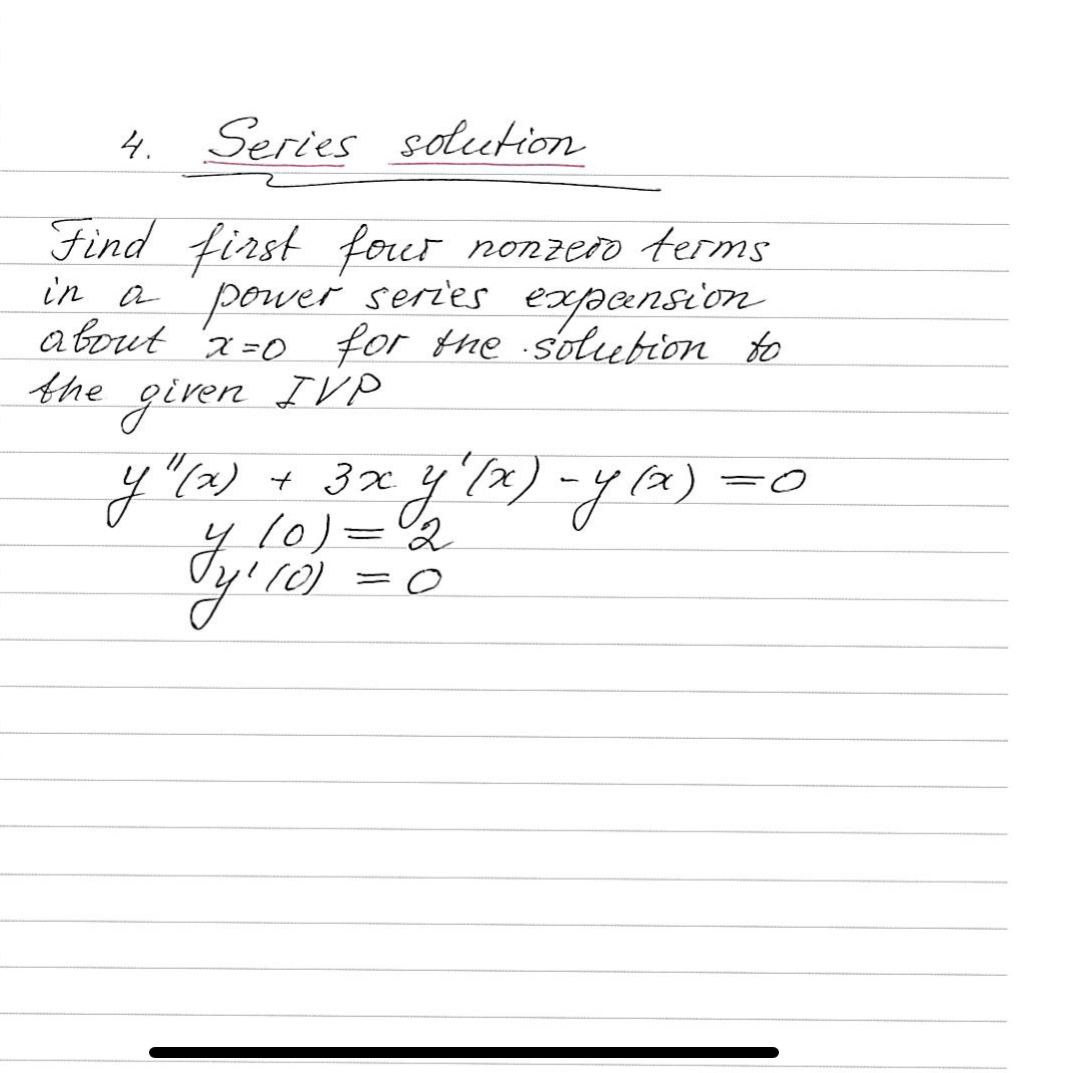 4. Series solution
Find first four nonzero terms
in a power series expansion
about x=0 for the solution to
the given IVP
y"(x) + 3x y'(x) - y(x) = 0
y(0) = 2
y'(0) = 0